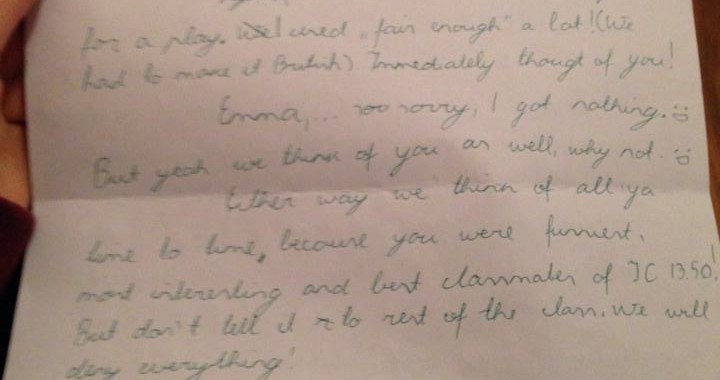 for a play. I used „fair enough" a lot! (We
had to make it British) Immediately thougt of you!
Emma,... soo sorry, I got nothing. :)
But yeah we think of you as well, why not. :)
Either way we think of all ya
time to time, because you were funniest,
most interesting and best classmates of IC 13.50!
But don't tell it to rest of the class. We will
deny everything!